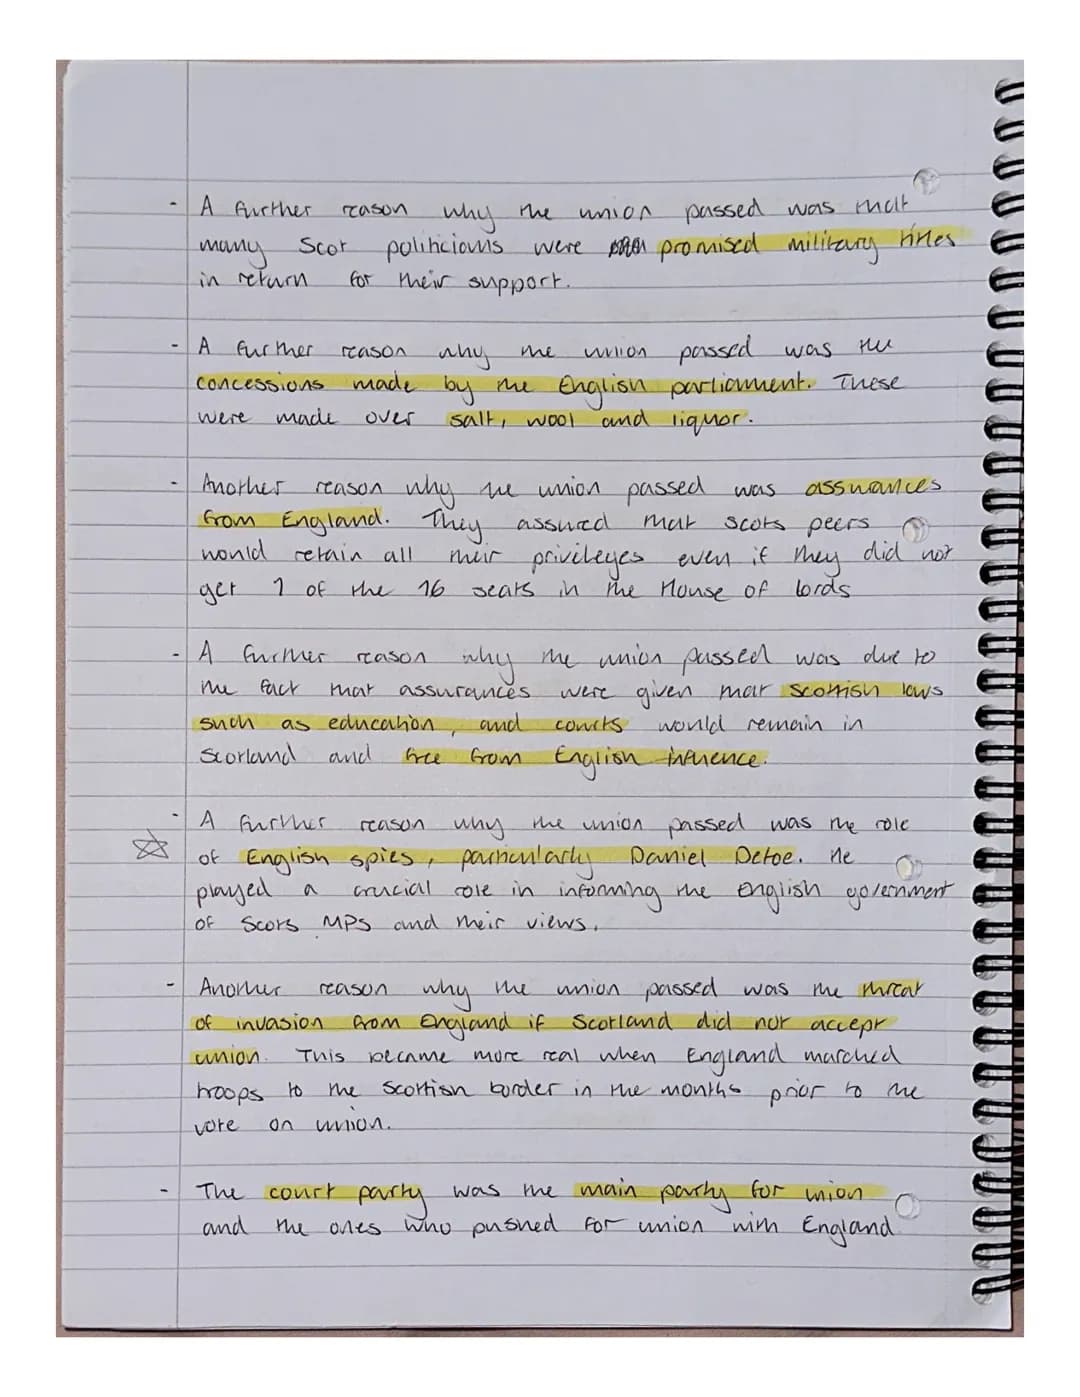 - A further reason why the union passed was that
many Scot politicians were promised military titles
in return for their support.
- A further reason why the union passed was the
concessions made by the English parliament. These
were made over salt, wool and liquor.
- Another reason why the union passed was assurances
from England. They assured that scots peers
would retain all their privileges even if they did not
get 1 of the 16 seats in the House of lords
- A further reason why the union passed was due to
the fact that assurances were given that scottish laws
such as education, and courts would remain in
Scotland and free from English influence.
- A further reason why the union passed was the role
of English spies, particularly Daniel Defoe. He
played a crucial role in informing the English government
of Scots MPs and their views.
- Another reason why the union passed was the threat
of invasion from England if Scotland did not accept
union. This became more real when England marched
troops to the Scottish border in the months prior to the
vote on union.
- The court party was the main party for union
and the ones who pushed for union with England